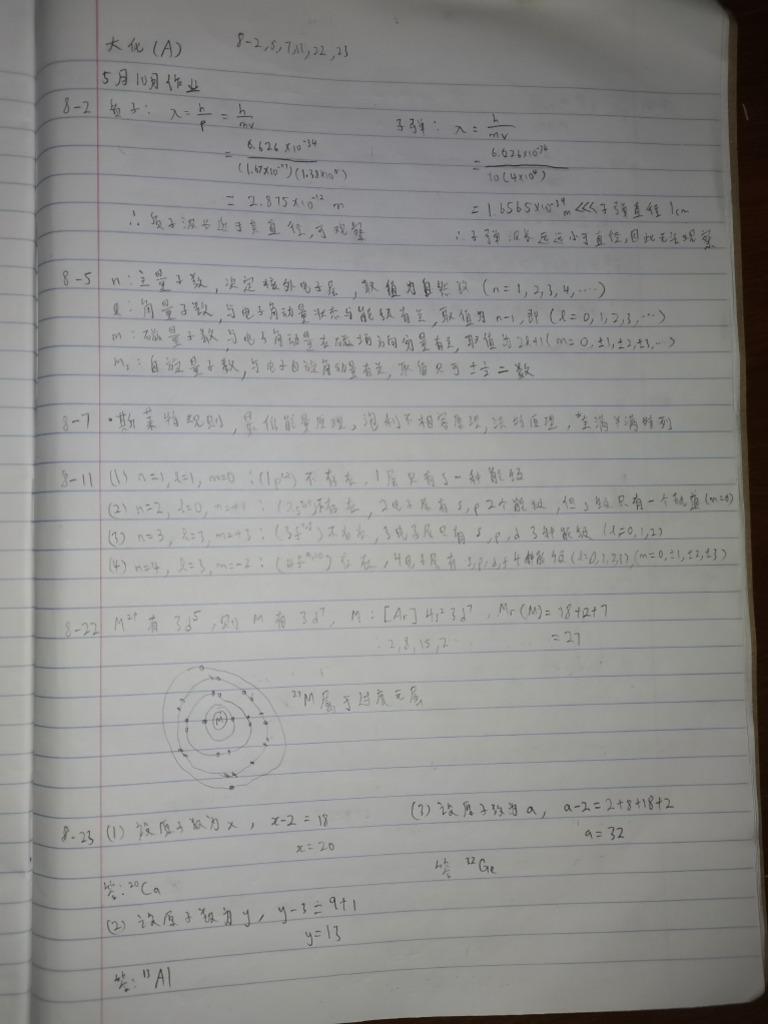 大化(A) 8-2,5,7,11,22,23
5月10日作业
8-2 质子: λ=h/p=h/mv 子弹: λ=h/mv
=6.626×10⁻³⁴/(1.67×10⁻²⁷)(1.38×10⁵) =6.626×10⁻³⁴/10(4×10⁴)
=2.875×10⁻¹²m =1.6565×10⁻³⁹m<<<子弹直径1cm
∴质子波长近于其直径,可观察 ∴子弹波长远远小于直径,因此无法观察
8-5 n:主量子数,决定核外电子层,取值为自然数(n=1,2,3,4,…)
l:角量子数,与电子角动量状态与能级有关,取值为n-1,即(l=0,1,2,3,…)
m:磁量子数与电子角动量在磁场方向分量有关,取值为2l+1(m=0,±1,±2,±3,…)
mₛ:自旋量子数,与电子自旋角动量有关,取值只为±½二数
8-7 ·斯莱特规则,最低能量原理,泡利不相容原理,洪特原理,全满半满排列
8-11 (1) n=1,l=1,m=0:不存在,1层只有s一种能级
(2) n=2,l=0,不存在,2电子层有s,p2个能级,但s级只有一个轨道(m=0)
(3) n=3,l=3,m=+3:不存在,3电子层只有s,p,d 3种能级(l=0,1,2)
(4) n=4,l=3,m=-2:存在,4电子层有s,p,d,f 4种能级(l=0,1,2,3)(m=0,±1,±2,±3)
8-22 M²⁺有3d⁵,则M有3d⁷,M:[Ar]4s²3d⁷,Mr(M)=18+2+7
:2,8,15,2 =27
M
²⁷M属于过度元层
8-23 (1) 设原子数为x,x-2=18 (3) 设原子数为a,a-2=2+8+18+2
x=20 a=32
答:²⁰Ca 答 ³²Ge
(2) 设原子数为y,y-3=9+1
y=13
答:¹³Al